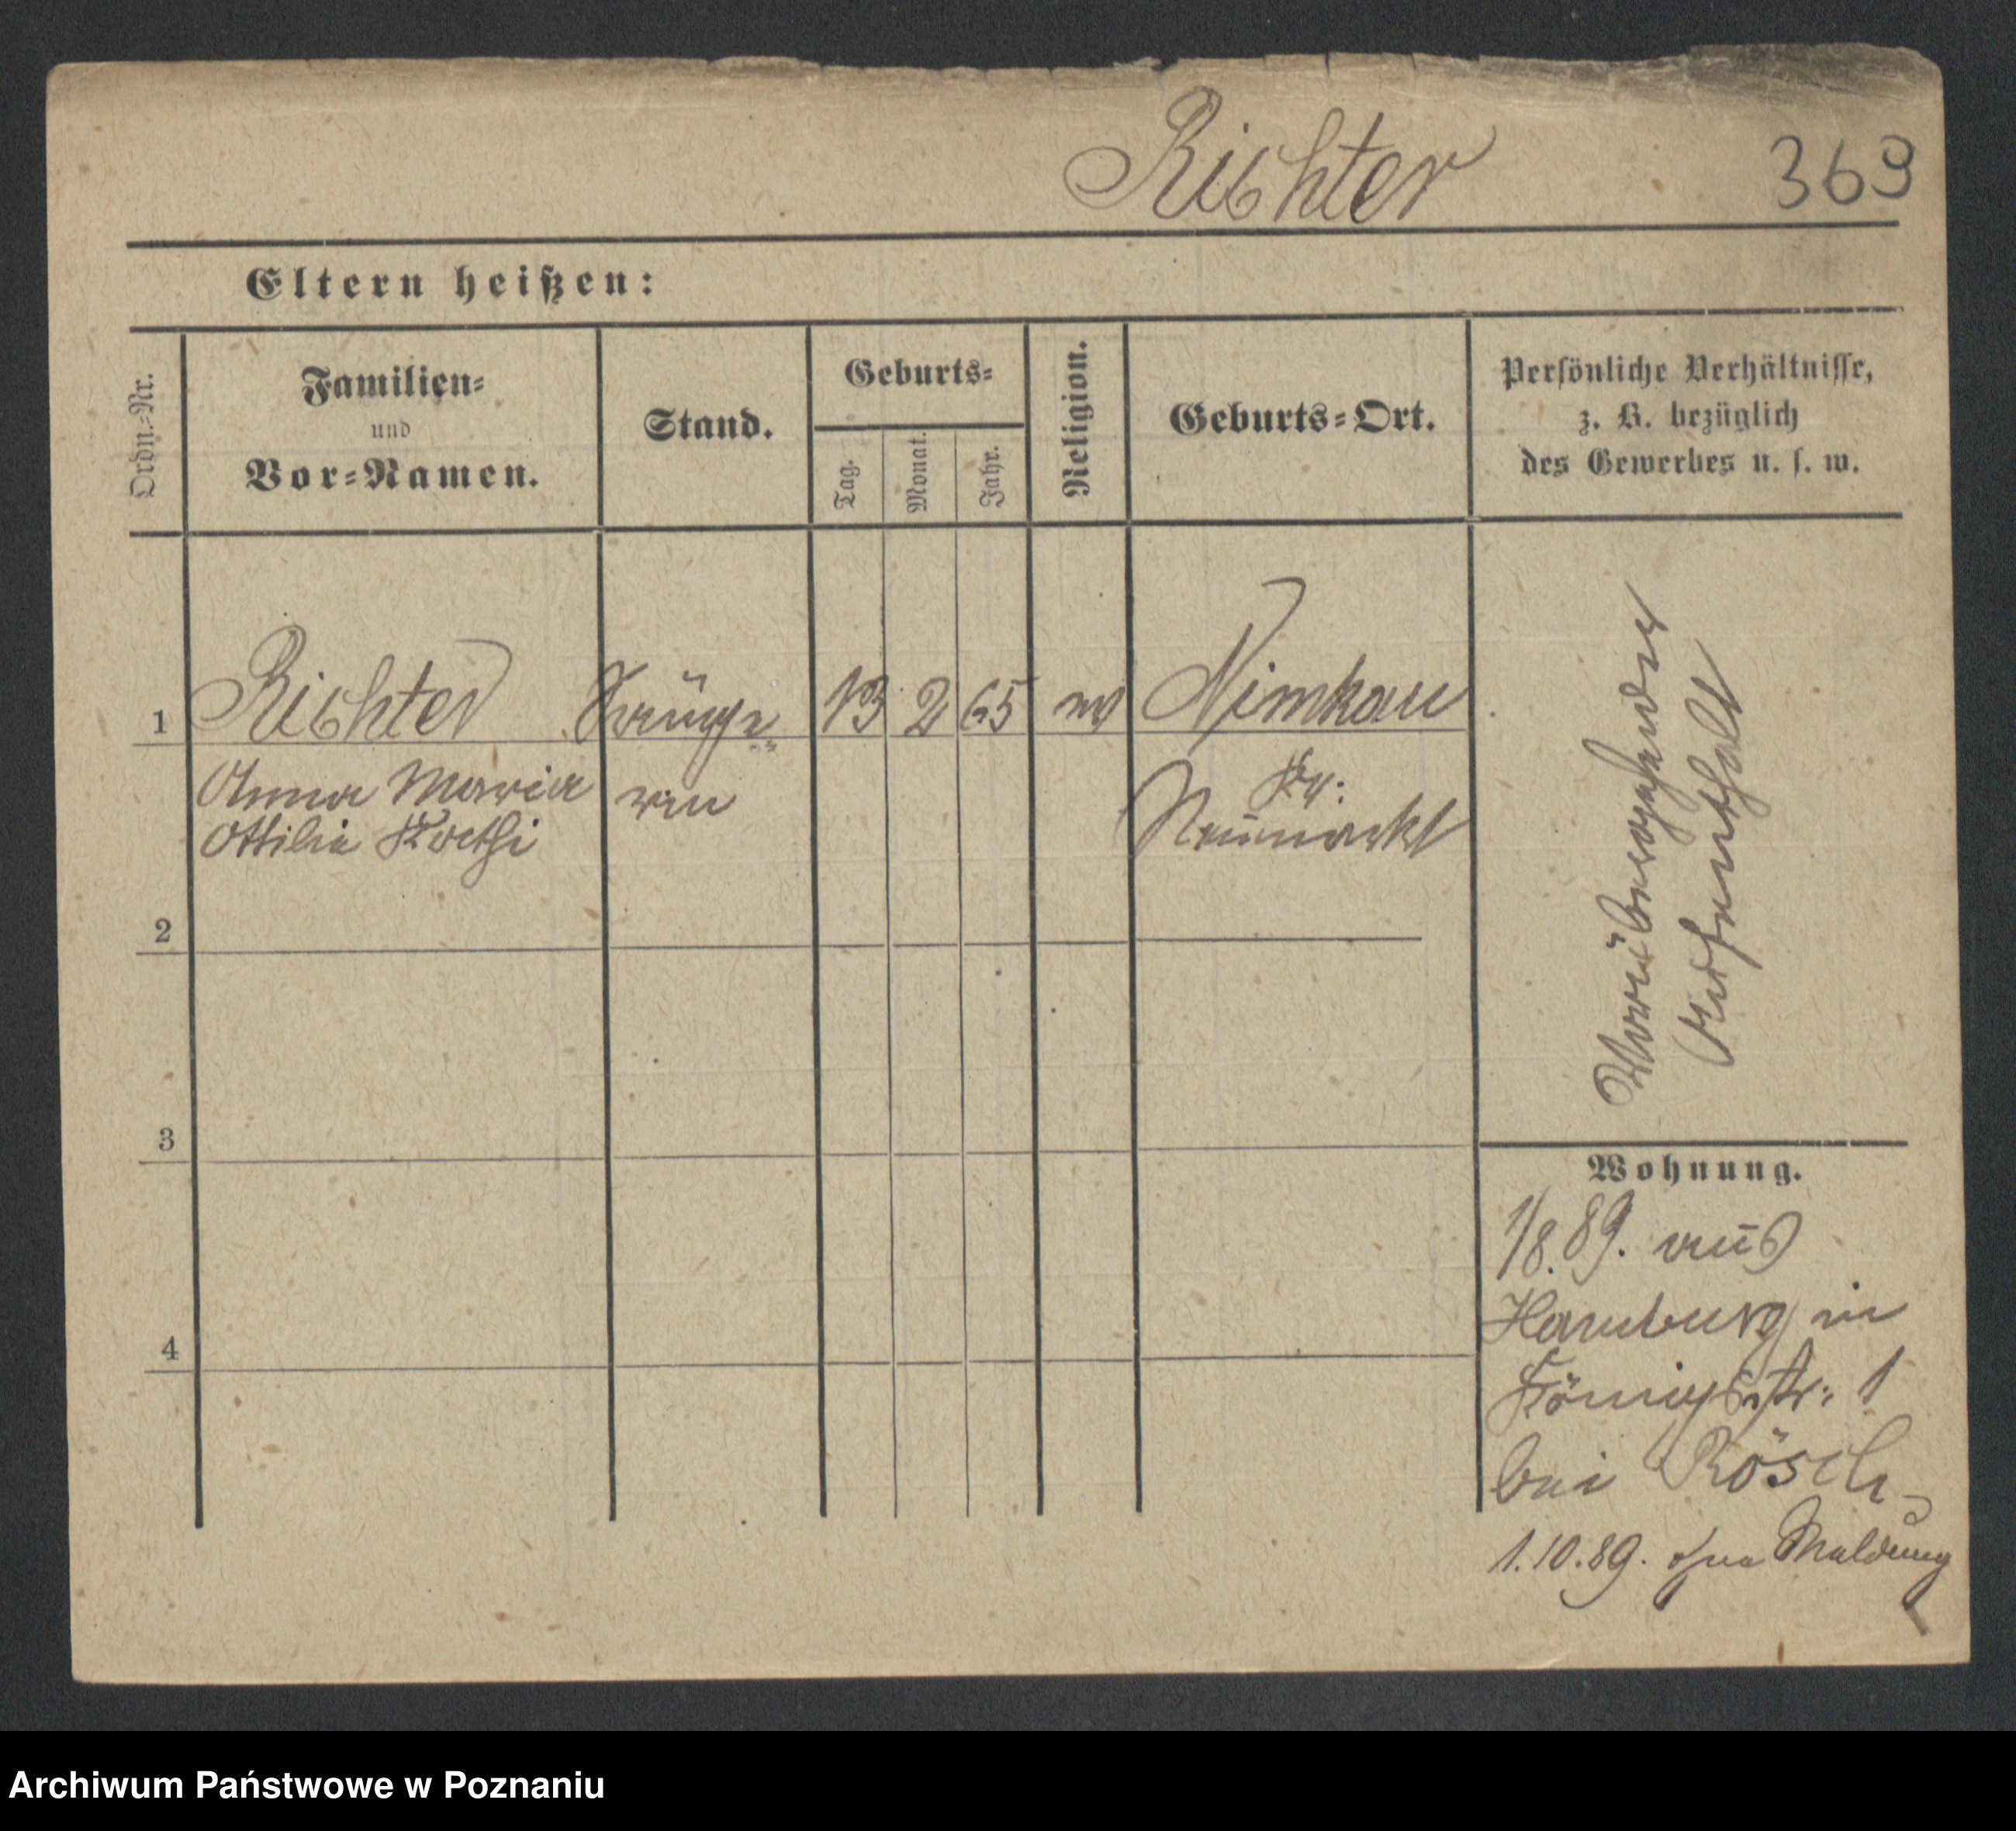 Richter
369
Eltern heißen:
Ordn.-Nr.
Familien-
und
Vor-Namen.
Stand.
Geburts-
Tag.
Monat.
Jahr.
Religion.
Geburts-Ort.
Persönliche Verhältnisse,
z. B. bezüglich
des Gewerbes u. s. w.
1
Richter
Anna Maria
Ottilie Kathi
Sänge-
rin
13
2
65
ev
Nimkau
Kr:
Neumarkt
Vorübergehender
Aufenthalt
2
3
4
Wohnung.
1/8.89. aus
Hamburg in
Königstr: 1
bei Rösch
1.10.89. ohne Meldung
Archiwum Państwowe w Poznaniu